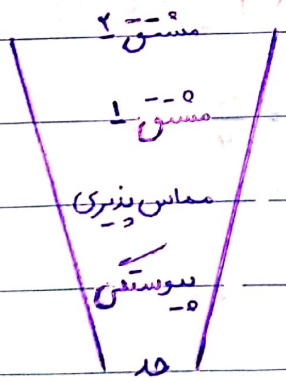 مشتق ۲
مشتق ۱
مماس پذیری
پیوستگی
حد